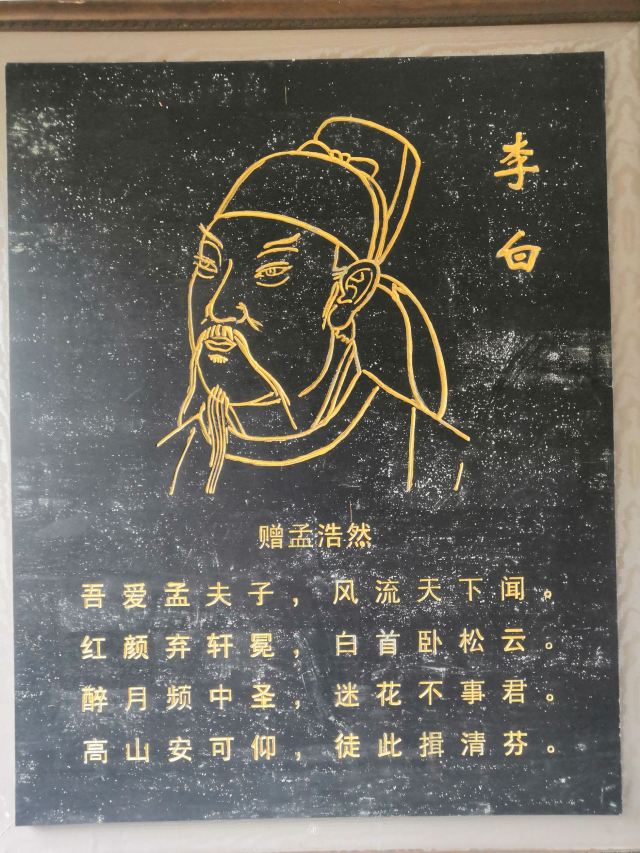 李白
赠孟浩然
吾爱孟夫子，风流天下闻。
红颜弃轩冕，白首卧松云。
醉月频中圣，迷花不事君。
高山安可仰，徒此揖清芬。